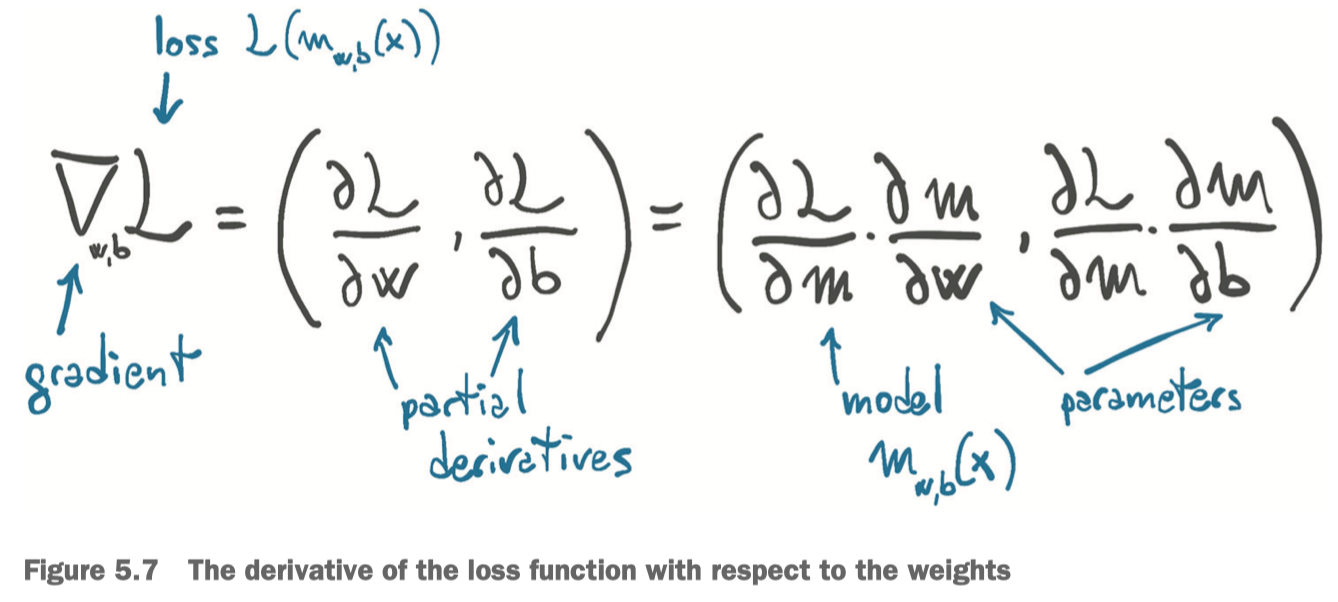 loss L(m_w,b(x))
∇_w,b L = (∂L/∂w, ∂L/∂b) = (∂L/∂m · ∂m/∂w, ∂L/∂m · ∂m/∂b)
gradient
partial
derivatives
model
m_w,b(x)
parameters
Figure 5.7 The derivative of the loss function with respect to the weights